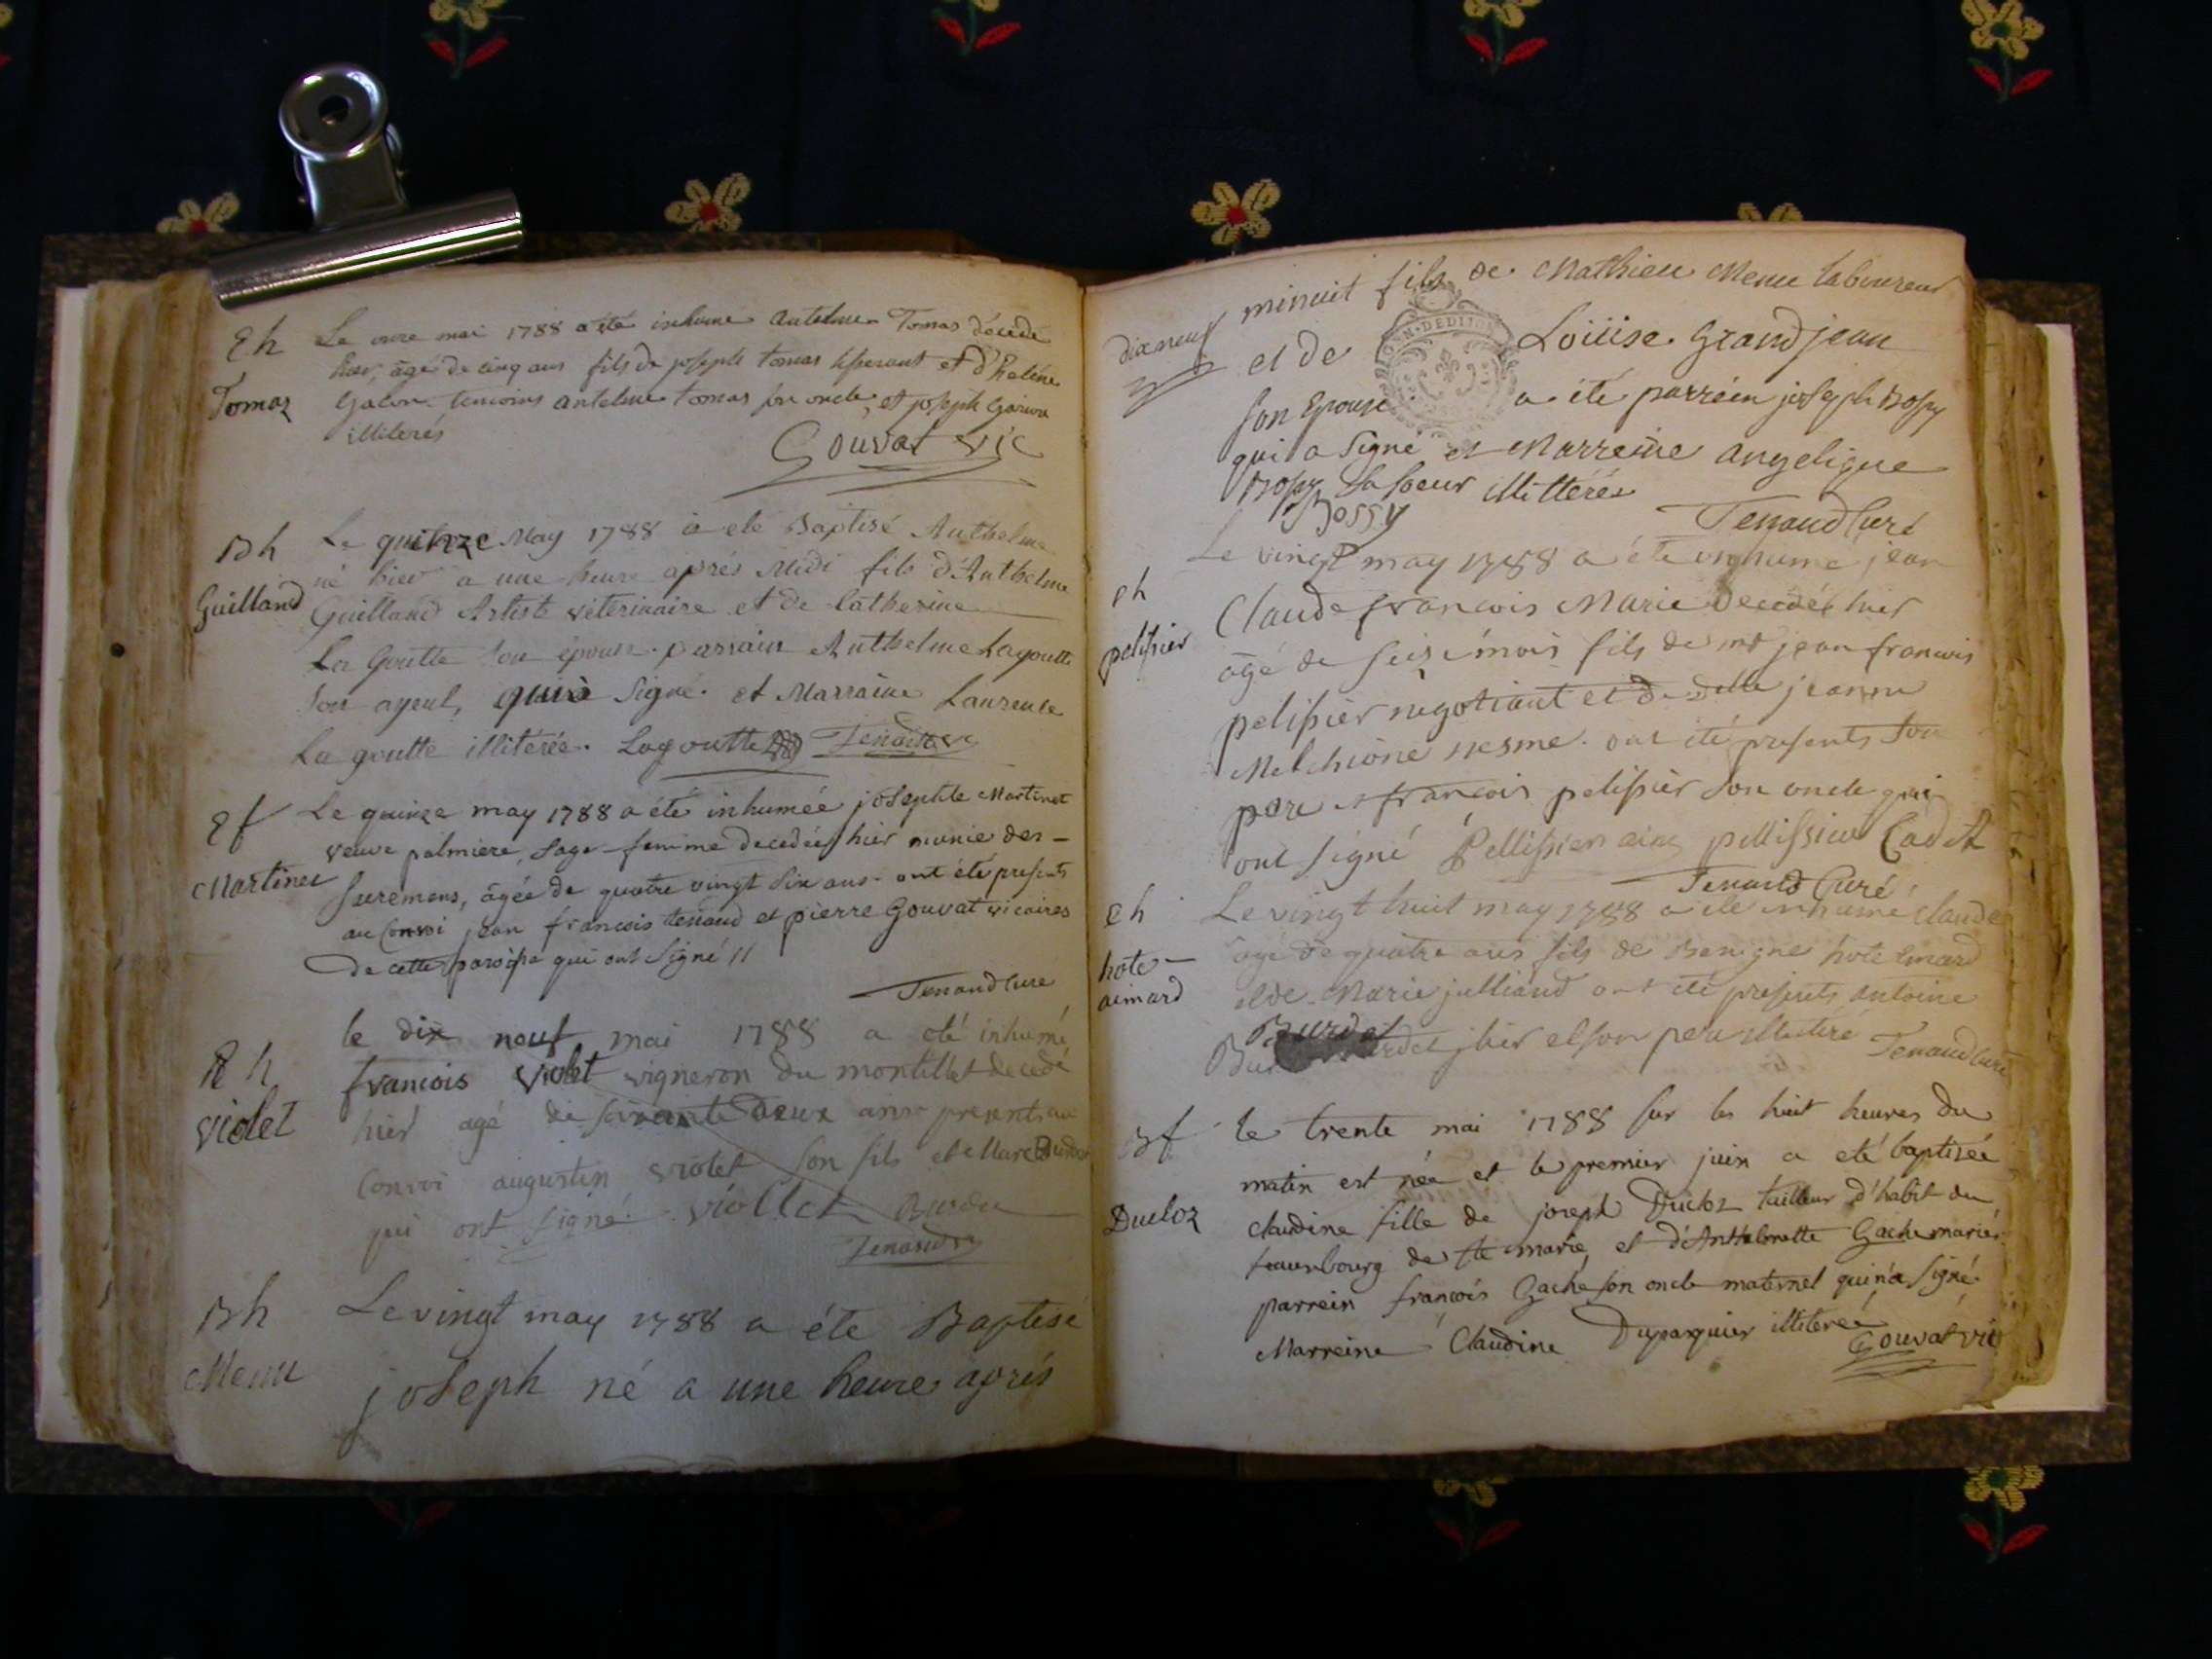 Eh
Tomaz
Le onze mai 1788 a été inhumé Antelme Tomas décédé
hier, âgé de cinq ans fils de joseph tomas et d'heléne
temoins antelme tomas son oncle, et joseph
illiterés
Gouvat vic
Bh
Guilland
Le quinze May 1788 à eté Baptisé Anthelme
né hier a une heure aprés Midi fils d'Anthelme
Guilland Artiste veterinaire et de Catherine
La Goutte son épouse. parrain Anthelme Lagoutte
son ayeul, qui a Signé. et Marraine Laurence
La goutte illiterée. Lagoutte
Ef
Martinet
Le quinze may 1788 a été inhumée josephte Martinet
veuve palmiere, sage-femme decedée hier munie des-
sacremens, âgée de quatre vingt six ans. ont été présents
au Convoi jean francois tenand et pierre Gouvat vicaires
de cette paroisse qui ont Signé //
Tenand Curé
Eh
violet
le dix neuf mai 1788 a eté inhumé
francois violet vigneron du montillet decedé
hier agé de soixante deux ans presents au
convoi augustin violet son fils et Marc Burdet
qui ont signé. viollet Burdet
Bh
Menu
Le vingt may 1788 a éte Baptisé
joseph né a une heure aprés
dix neuf
minuit fils de Mathieu Menu laboureur
et de Loüise. Grandjean
DEDIJON
son Epouse a été parrein joseph Bossy
qui a signé et Marreine angelique
Bossy sa soeur illittérée
Bossy
Tenand Curé
eh
pelissier
Le vingt may 1788 a été inhumé jean
Claude francois Marie decedé hier
âgé de seize mois fils de mr jean francois
pelissier negotiant et de delle jeanne
Melchione nesme. ont été presents son
pere et francois pelissier son oncle qui
ont signé Pellissier ainé pellissier Cadet
Tenand Curé
eh
hote-
aimard
Le vingt huit may 1788 a été inhumé Claude
âgé de quatre ans fils de Benigne hote aimard
et de Marie julliand ont été présents antoine
Burdet
et son pere illitéré Tenand Curé
Bf
Ducloz
le trente mai 1788 sur les huit heures du
matin est née et le premier juin a eté baptisée
claudine fille de joseph Ducloz tailleur d'habit du
fauxbourg de ste marie, et d'Anthelmette Gache mariés.
parrein françois Gache son oncle maternel qui n'a signé.
Marreine Claudine Dupasquier illiterée
Gouvat vic